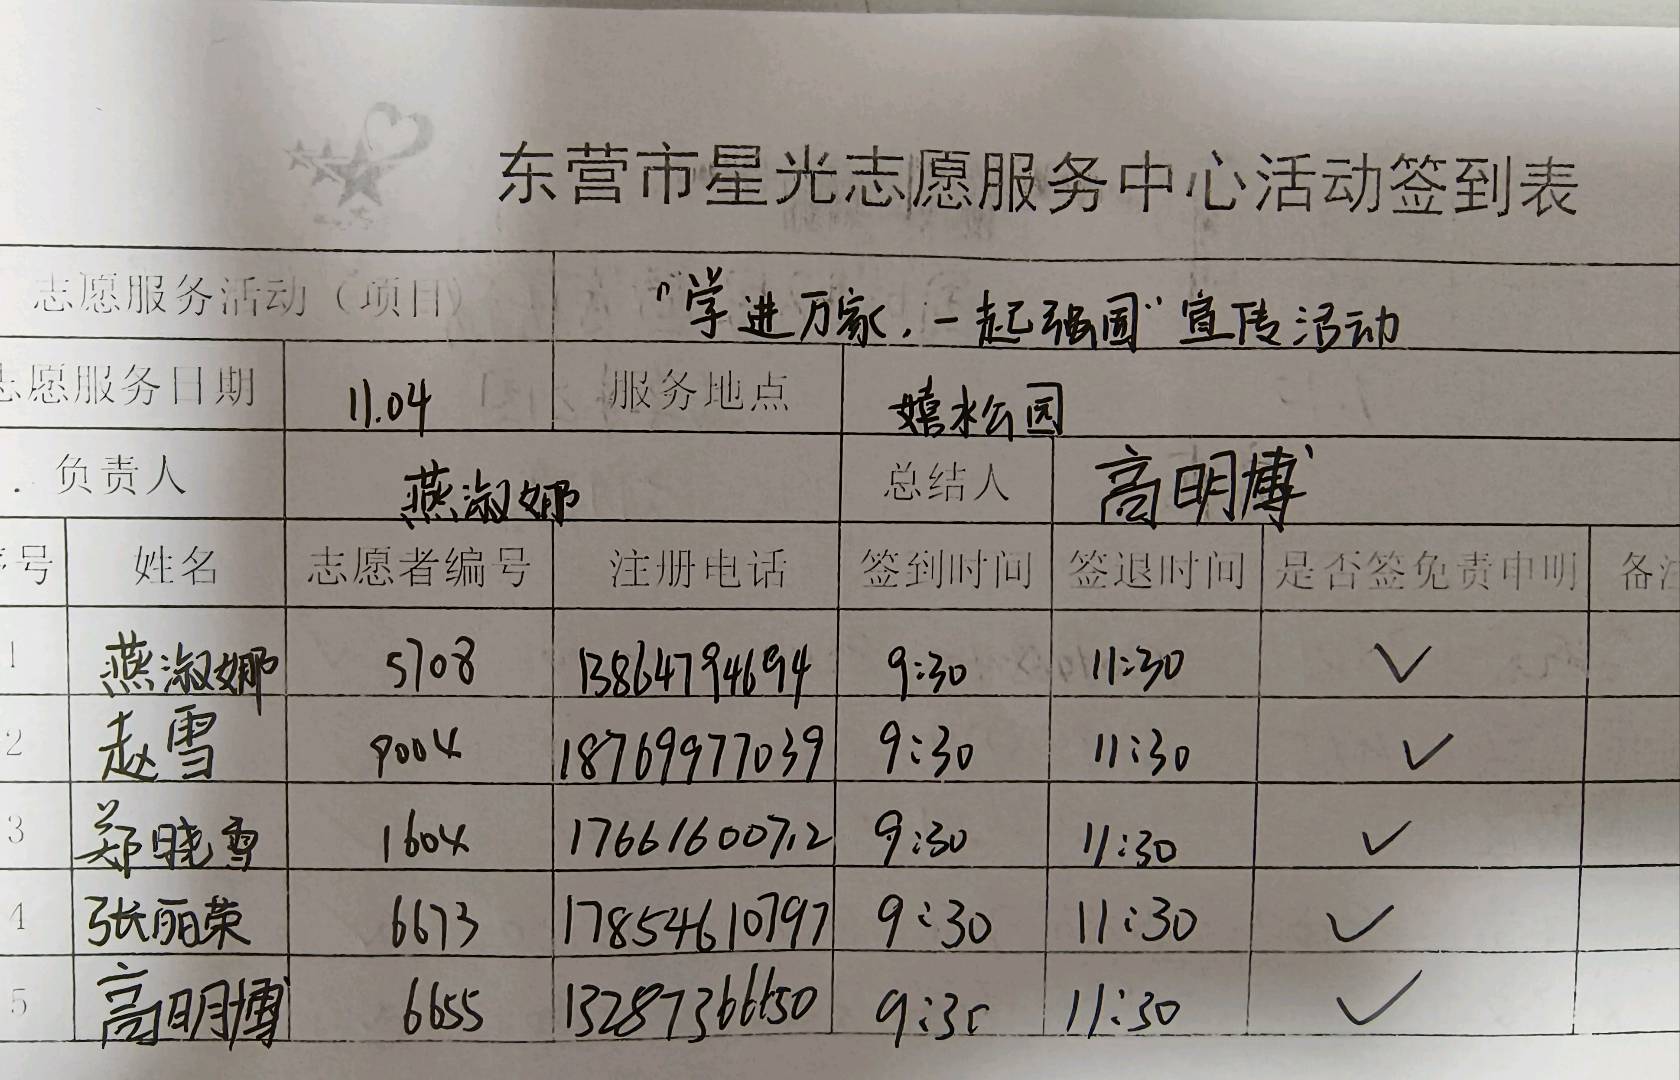 东营市星光志愿服务中心活动签到表
志愿服务活动（项目） “学进万家，一起强国”宣传活动
志愿服务日期 11.04 服务地点 嬉水公园
负责人 燕淑娜 总结人 高明博
序号 姓名 志愿者编号 注册电话 签到时间 签退时间 是否签免责申明 备注
1 燕淑娜 5708 13864794694 9:30 11:30 ✓
2 赵雪 9004 18769977039 9:30 11:30 ✓
3 郑晓雪 1604 17661600712 9:30 11:30 ✓
4 张丽荣 6673 17854610797 9:30 11:30 ✓
5 高明博 6655 13287366650 9:30 11:30 ✓